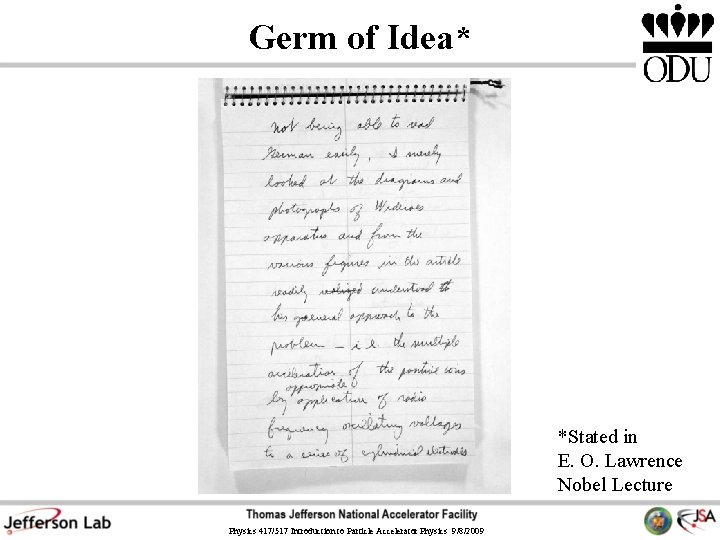 Germ of Idea*
ODU
not being able to read
German easily, I merely
looked at the diagrams and
photographs of Wideroes
apparatus and from the
various figures in the article
readily realized understood
his general approach to the
problem – i.e. the multiple
acceleration of the positive ions
appropriate
by application of radio
frequency oscillating voltages
to a series of cylindrical electrodes
*Stated in
E. O. Lawrence
Nobel Lecture
Jefferson Lab
Thomas Jefferson National Accelerator Facility
Physics 417/517 Introduction to Particle Accelerator Physics 9/8/2009
JSA